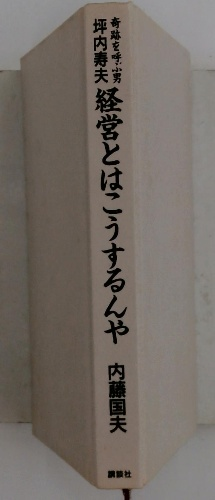 奇跡を呼ぶ男
坪内寿夫
経営とはこうするんや
内藤国夫
講談社